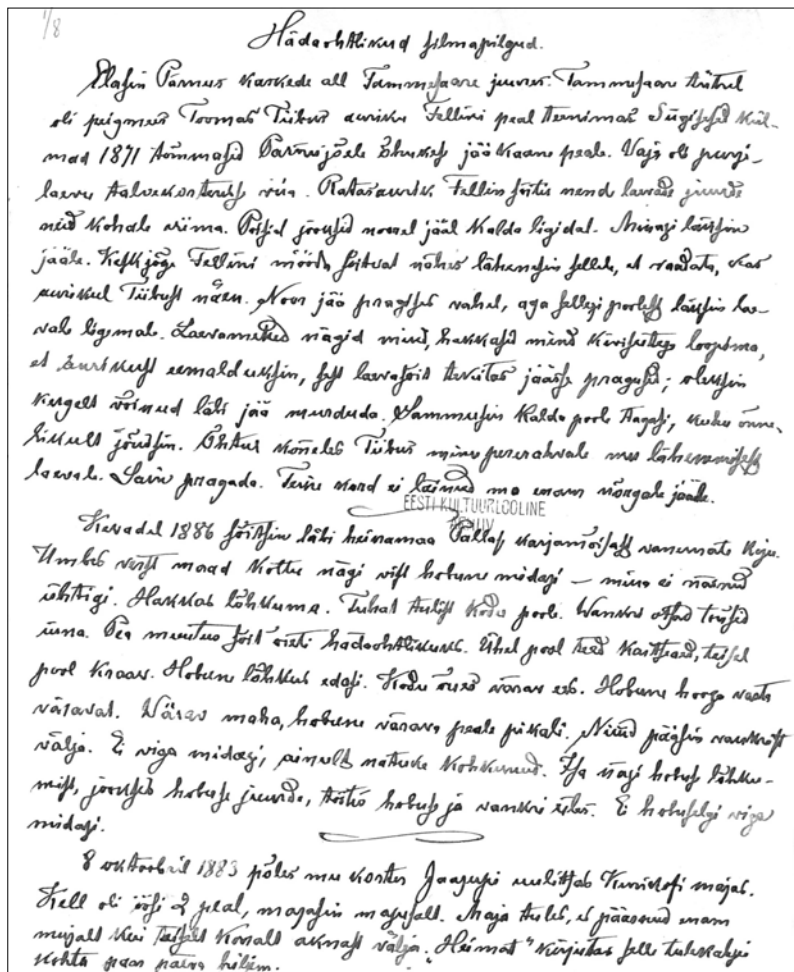 1/8
Hädaohtlikud silmapilgud.
Elasin Pärnus kaskede all Tammesaare juures. Tammesaare tütrel
oli peigmees Toomas Tiibus auriku Fellini peal teenimas. Sügisesed kül-
mad 1871 tõmmasid Pärnu jõele õhukese jääkaane peale. Vaja oli purje-
laevu talvekorterisse viia. Ratasaurik Fellin sõitis nende laevade juurde
neid kohale viima. Poisid jooksid noorel jääl kalda ligidal. Minagi läksin
jääle. Keskjõge Fellini mööda sõitvat nähes lähenesin sellele, et vaadata, kas
aurikul Tiibust näen. Noor jää pragises vahel, aga sellegi poolest läksin lae-
vale ligemale. Laevamehed nägid mind, hakkasid mind kivisütega loopima,
et aurikust eemalduksin, sest laevasõit tekitas jäässe pragusid; oleksin
kergelt võinud läbi jää murduda. Sammusin kalda poole tagasi, kuhu õnne-
likult jõudsin. Õhtul kõneles Tiibus minu pererahvale mu lähenemisest
laevale. Sain pragada. Teine kord ei läinud ma enam nõrgale jääle.
EESTI KULTUURLOOLINE
ARHIIV
Kevadel 1886 sõitsin läbi heinamaa Pallas karjamõisast vanemate koju.
Umbes verst maad kottu nägi vist hobune midagi — mina ei näenud
ühtigi. Hakkas lõhkuma. Tuhat tulist kodu poole. Wankri otsad tõusid
üles. Pea muutus sõit õieti hädaohtlikuks. Ühel pool teed kartteed, teisel
pool kraav. Hobune lõhkus edasi. Kodu õues värav ees. Hobune hooga vasta
väravat. Wärav maha, hobune värava peale pikali. Nüüd pääsin vankrist
välja. Ei viga midagi, ainult natuke kohkunud. Isa nägi hobuse lõhku-
mist, jooksis hobuse juurde, tõstis hobuse ja vankri üles. Ei hobuselgi viga
midagi.
8 oktoobril 1883 põles mu korter Jaagupi uulitsas Kuriskofi majas.
Kell oli öösi 2 peal, magasin magusalt. Maja tules, ei pääsenud enam
mujalt kui teiselt korralt aknast välja. "Heimat" kirjutas selle tulekahju
kohta paar päeva hiljem.